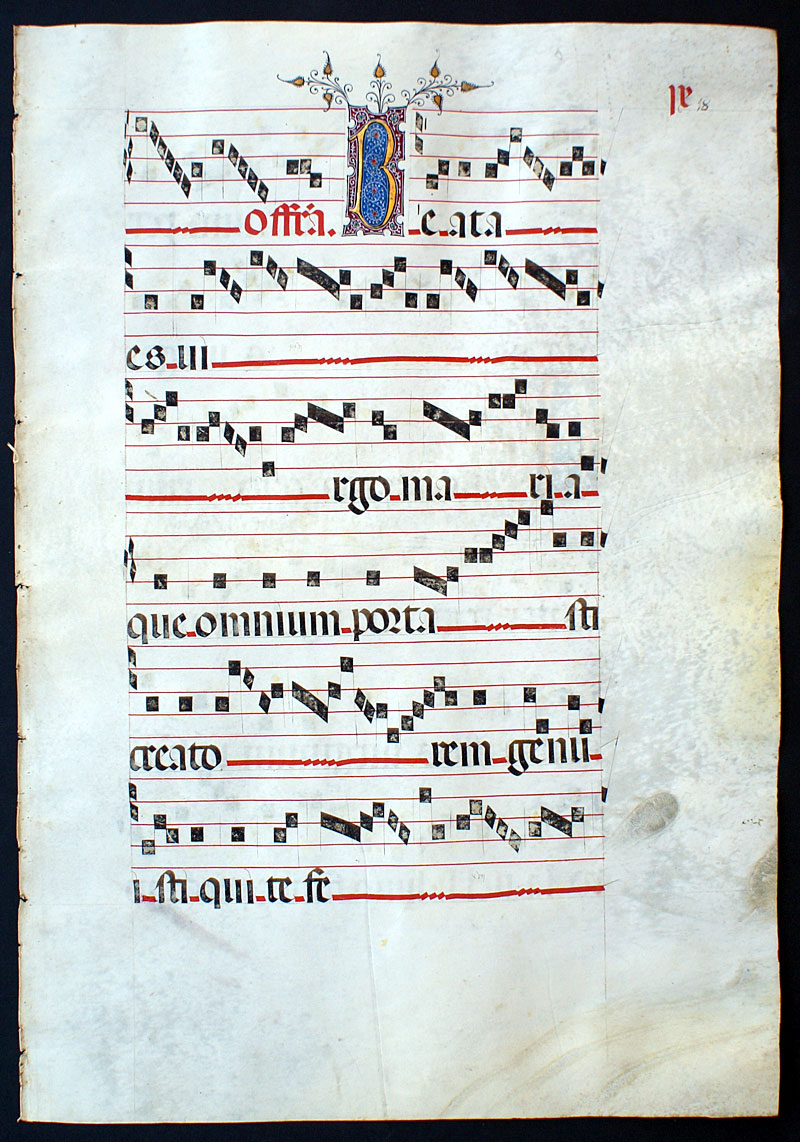 Offra. Beata
es ui
rgo ma ri a
que omnium porta sti
creato rem genu
i sti qui te fe